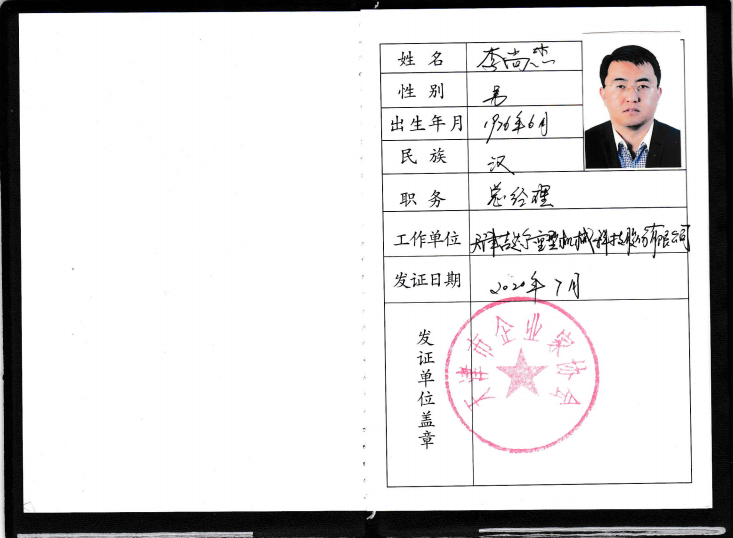 姓 名 李尚杰
性 别 男
出生年月 1976年6月
民 族 汉
职 务 总经理
工作单位 重型机械科技股份有限公司
发证日期 2020年7月
发证单位盖章
天津市企业家协会